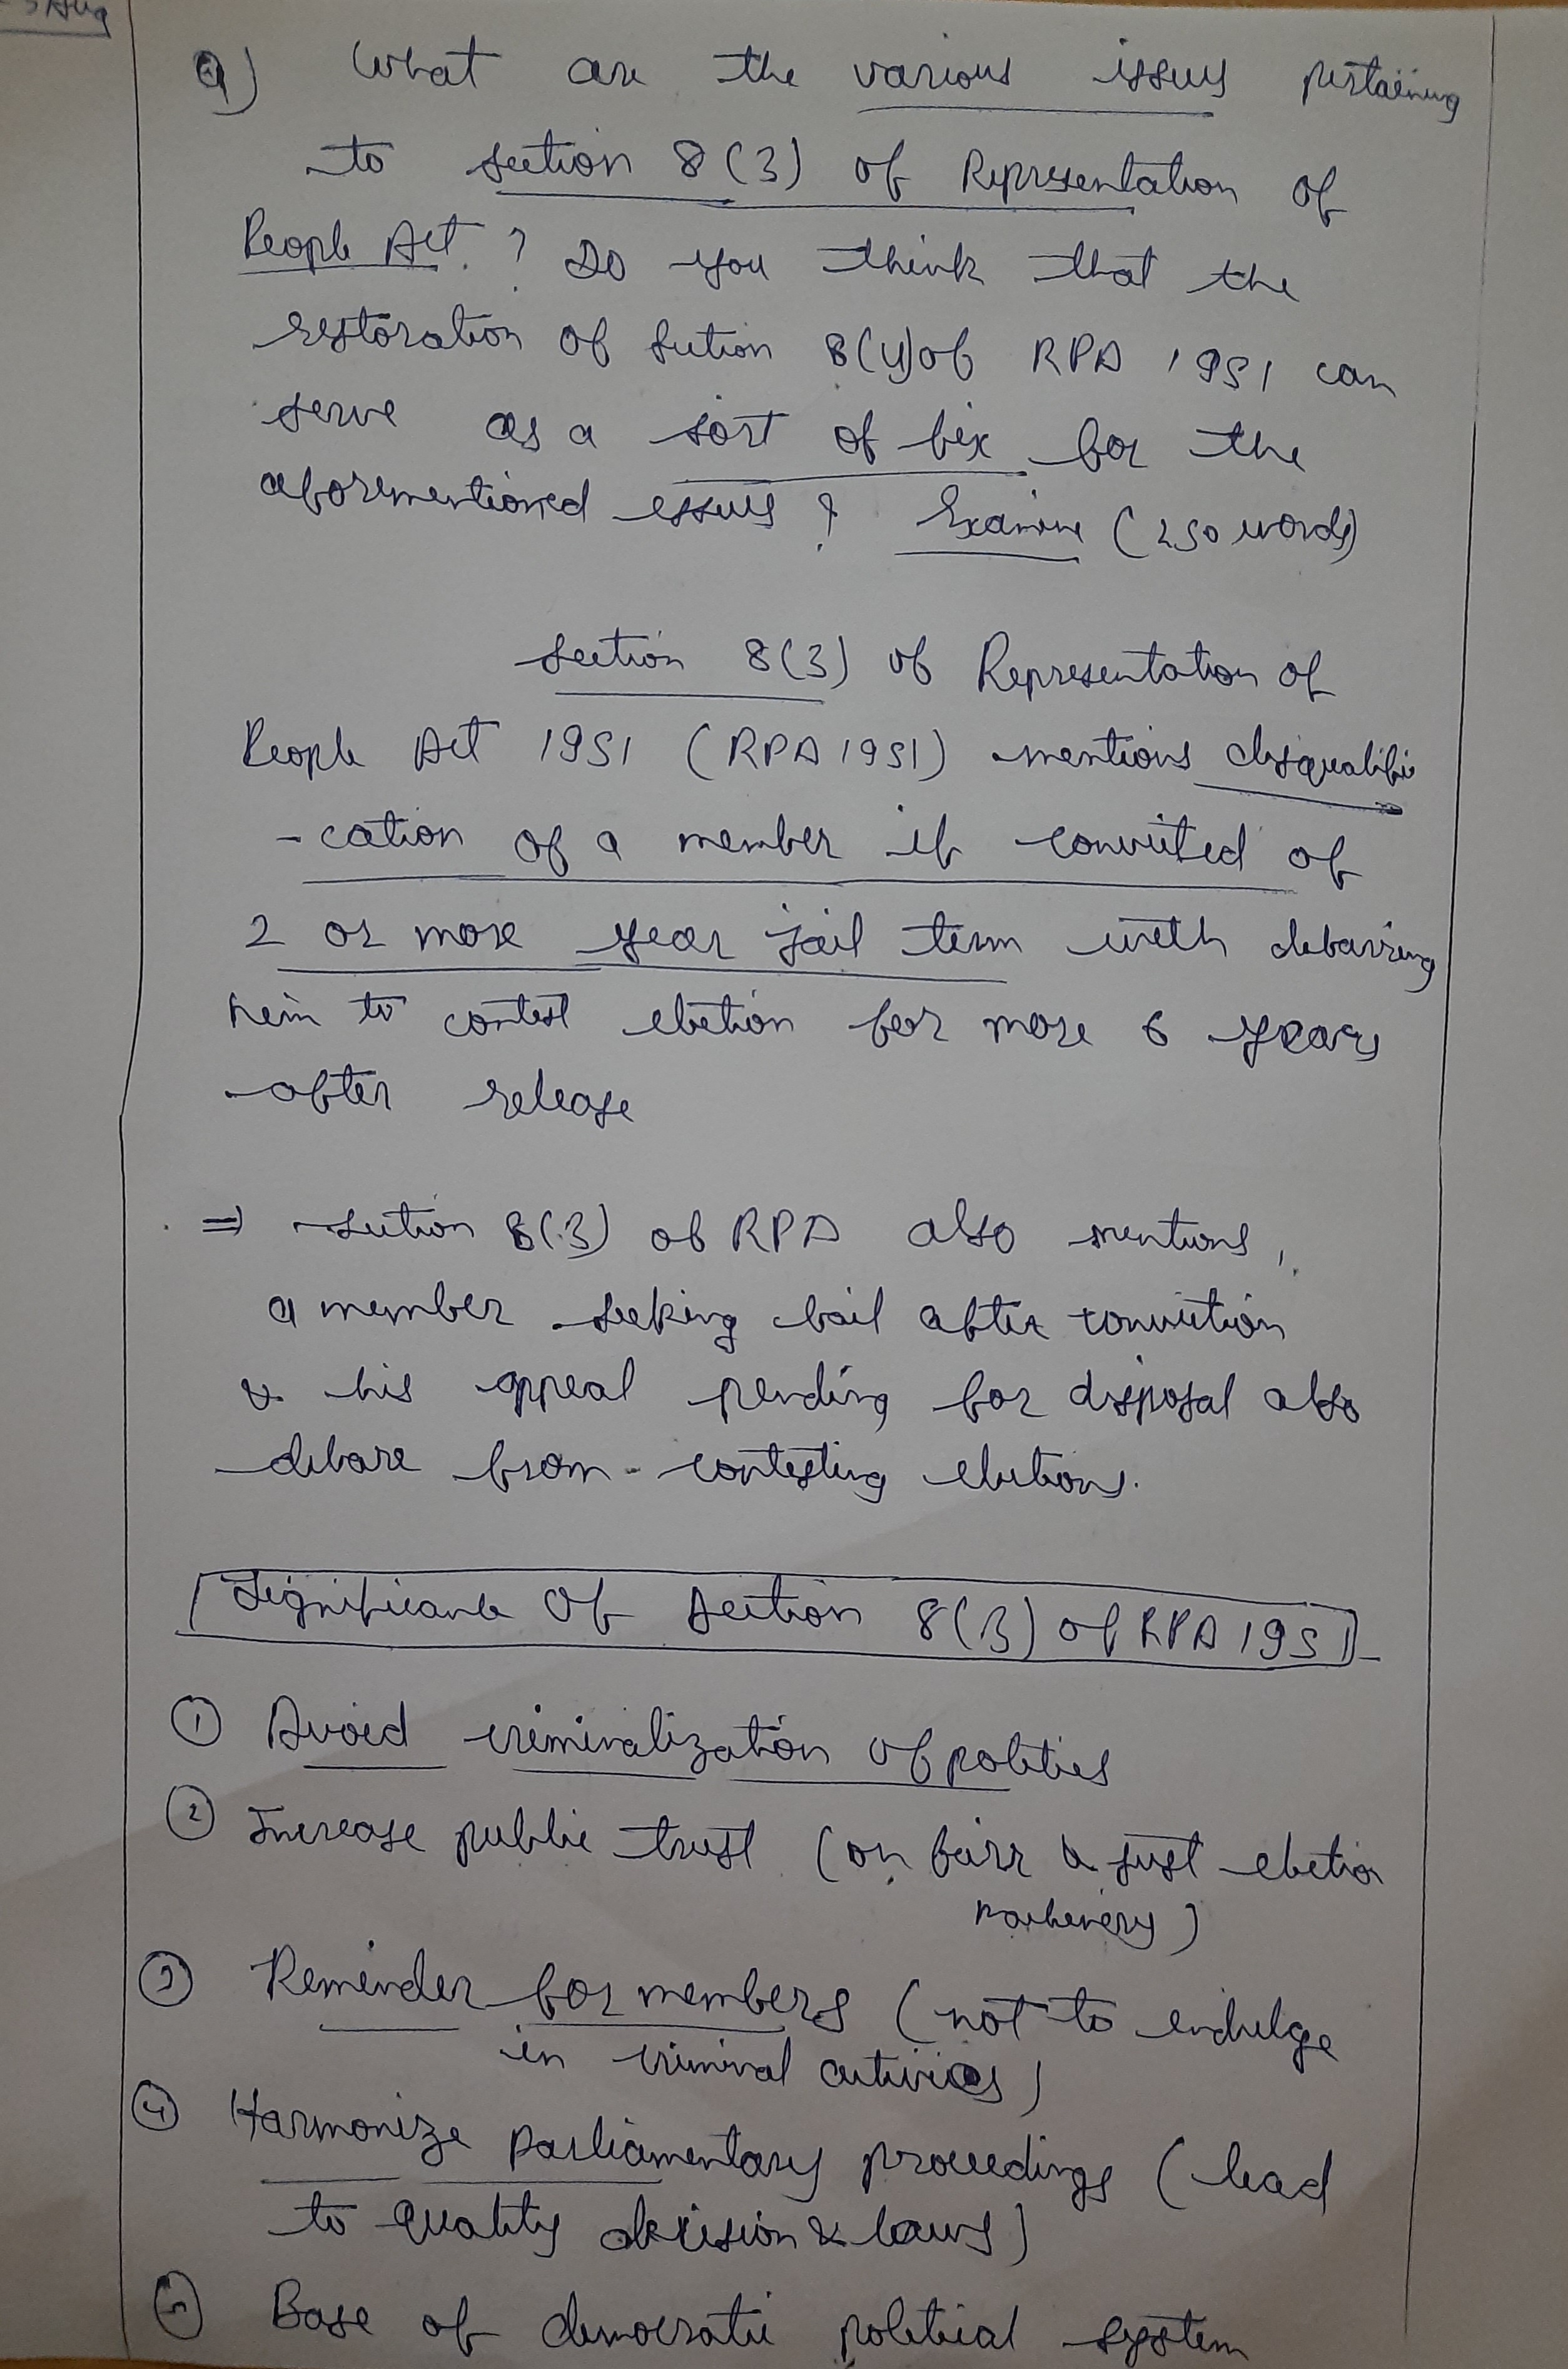 5 Aug
Q) What are the various issues pertaining
to section 8(3) of Representation of
People Act. ? Do you think that the
restoration of section 8(4) of RPA 1951 can
serve as a sort of fix for the
aforementioned issues ? Examine (250 words)
Section 8(3) of Representation of
People Act 1951 (RPA 1951) mentions disqualifi
-cation of a member if convicted of
2 or more year jail term with debarring
him to contest election for more 6 years
after release
⇒ section 8(3) of RPA also mentions,
a member seeking bail after conviction
& his appeal pending for disposal also
debare from contesting elections.
Significance Of Section 8(3) of RPA 1951
① Avoid criminalization of politics
② Increase public trust (on fair & just election
machinery)
③ Reminder for members (not to indulge
in criminal activities)
④ Harmonize parliamentary proceedings (lead
to quality decision & laws)
⑤ Base of democratic political system